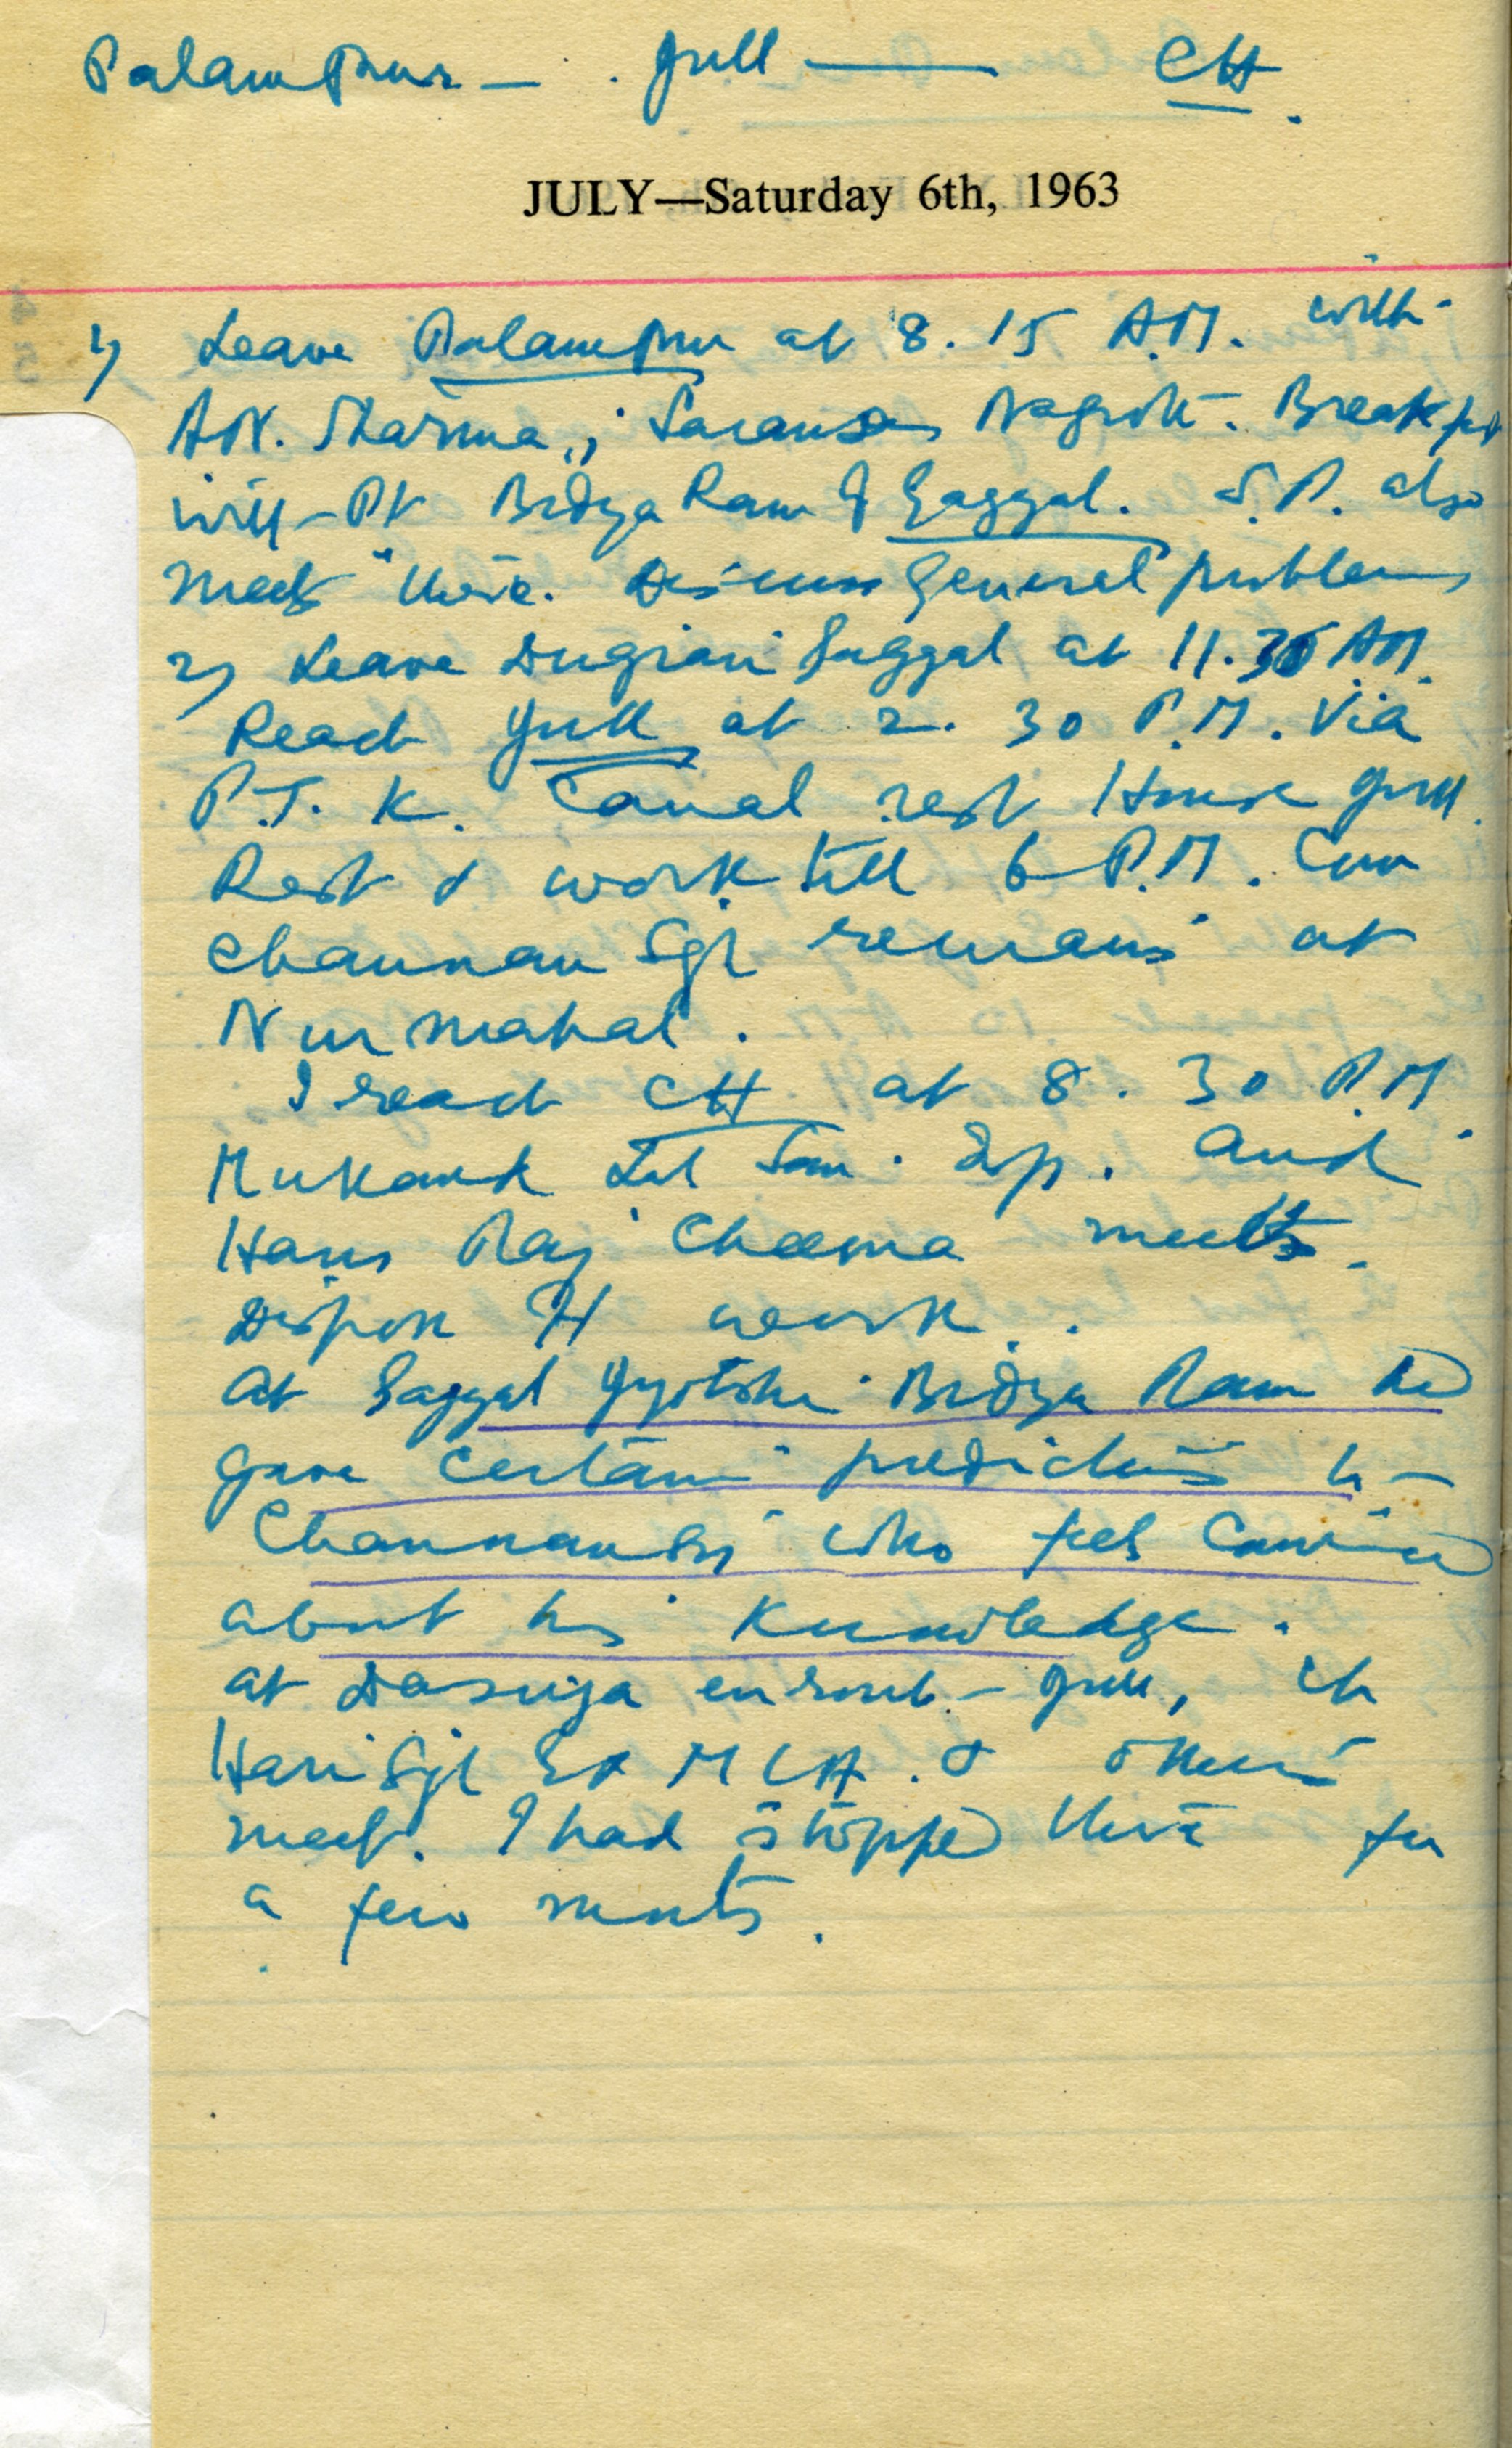 Palampur — Jull — CH.
JULY—Saturday 6th, 1963
1) Leave Palampur at 8.15 A.M. with
A.N. Sharma, Nagrota. Breakfast
with Pt Bidya Ram of Gaggal. S.P. also
meets there. Discuss General problems
2) Leave Gaggal at 11.30 AM.
Reach Jull at 2.30 P.M. Via
P.T.K. Canal rest House Jull.
Rest & work till 6 P.M.
Channan Sgh remains at
Nurmahal.
I reach CH at 8.30 P.M.
Mukand Lal and
Hans Raj Cheema meets.
Dispose of work.
At Gaggal Jyotshi Bidya Ram
gave certain predictions to
Channan Sgh who feels convinced
about his knowledge.
at Dasuya enroute Jull, Ch
Hari Sgh Ex MLA. & others
meet. I had stopped there for
a few minuts.